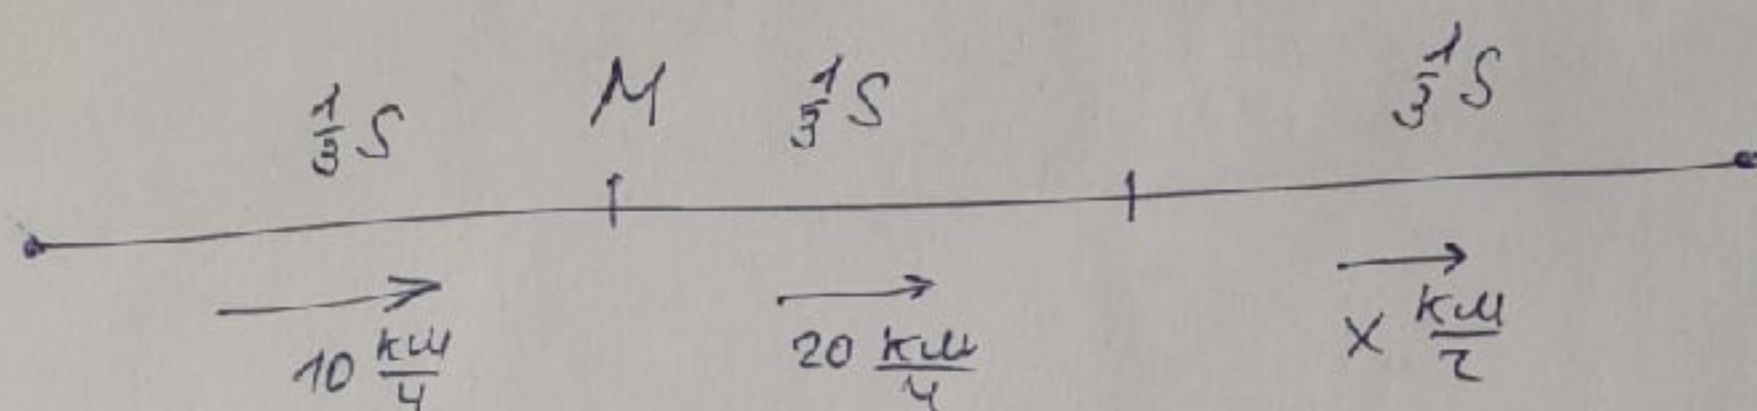 1/3 S M 1/3 S 1/3 S
10 км/ч 20 км/ч x км/ч